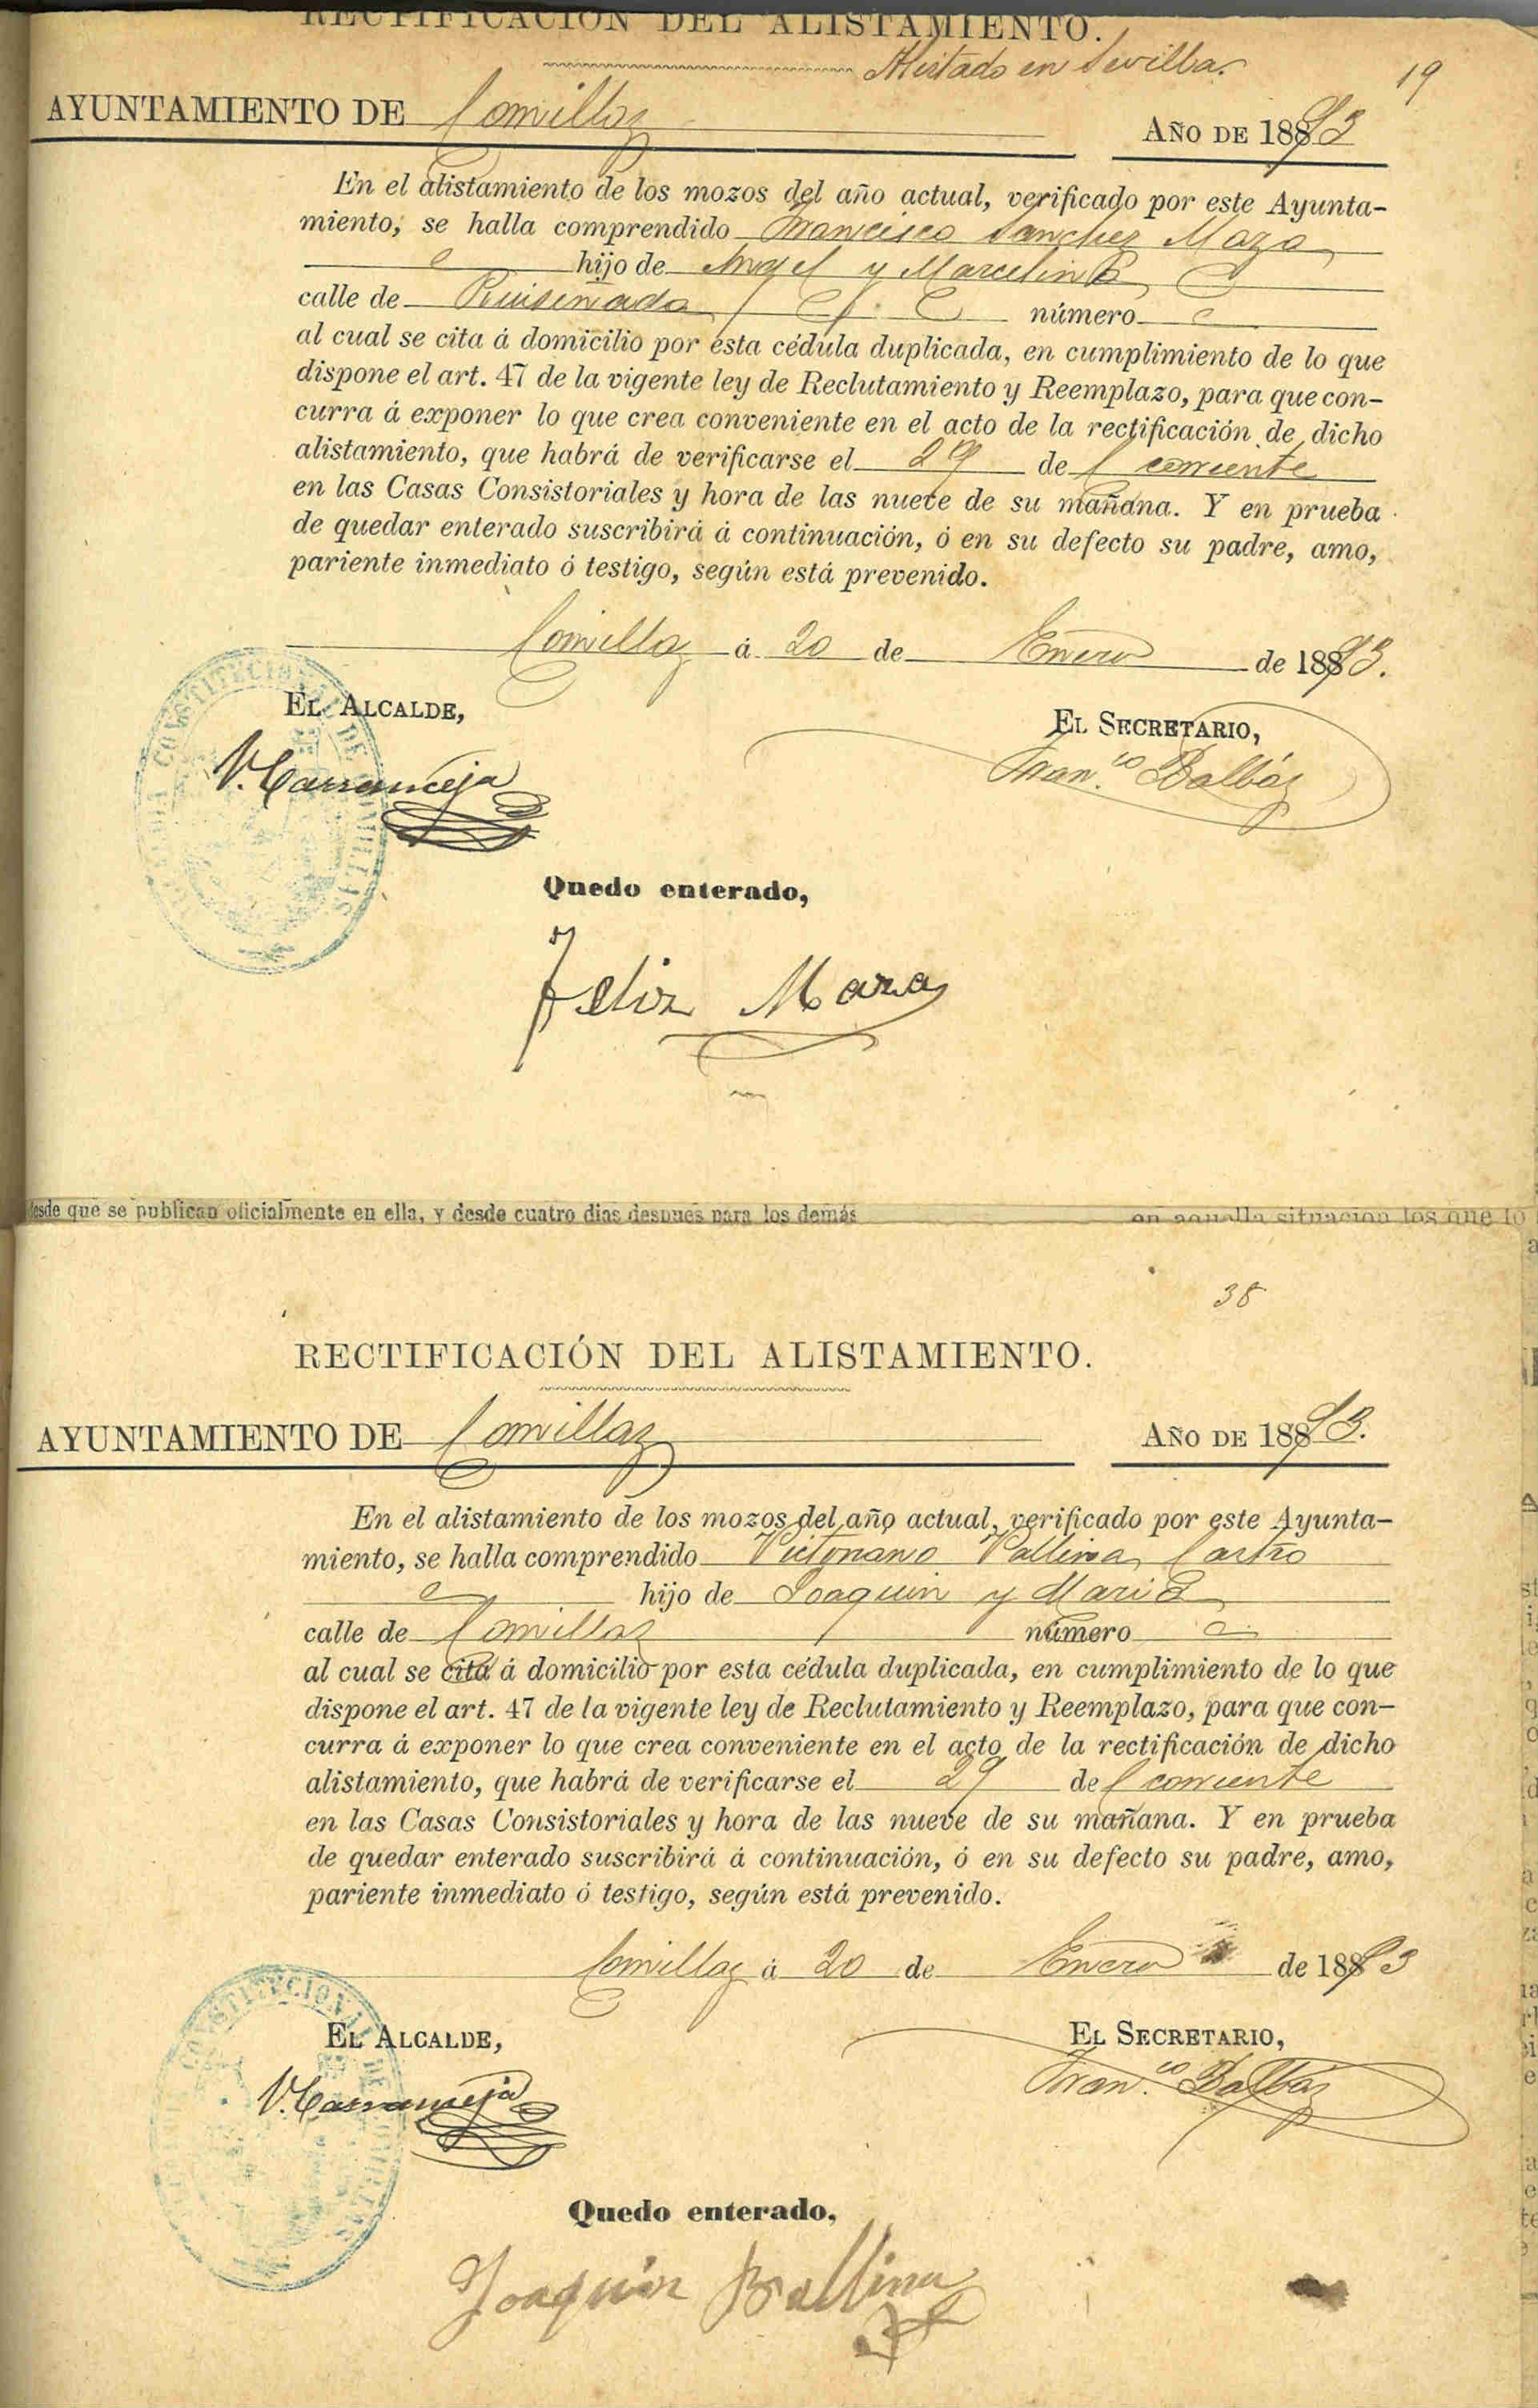 RECTIFICACIÓN DEL ALISTAMIENTO.
Alistado en Sevilla.
19
AYUNTAMIENTO DE Comillas
AÑO DE 1893
En el alistamiento de los mozos del año actual, verificado por este Ayunta-
miento, se halla comprendido Francisco Sanchez Maza
hijo de Angel y Marcelina
calle de Ruiseñada número
al cual se cita á domicilio por esta cédula duplicada, en cumplimiento de lo que
dispone el art. 47 de la vigente ley de Reclutamiento y Reemplazo, para que con-
curra á exponer lo que crea conveniente en el acto de la rectificación de dicho
alistamiento, que habrá de verificarse el 29 del corriente
en las Casas Consistoriales y hora de las nueve de su mañana. Y en prueba
de quedar enterado suscribirá á continuación, ó en su defecto su padre, amo,
pariente inmediato ó testigo, según está prevenido.
Comillas á 20 de Enero de 1893.
EL ALCALDE,
EL SECRETARIO,
V. Carranceja
Fran.co Balbás
Quedo enterado,
Feliz Maza
desde que se publican oficialmente en ella, y desde cuatro dias despues para los demás
en aquella situacion los que lo
38
RECTIFICACIÓN DEL ALISTAMIENTO.
AYUNTAMIENTO DE Comillas
AÑO DE 1893.
En el alistamiento de los mozos del año actual, verificado por este Ayunta-
miento, se halla comprendido Victoriano Vallina Castro
hijo de Joaquin y Maria
calle de Comillas número
al cual se cita á domicilio por esta cédula duplicada, en cumplimiento de lo que
dispone el art. 47 de la vigente ley de Reclutamiento y Reemplazo, para que con-
curra á exponer lo que crea conveniente en el acto de la rectificación de dicho
alistamiento, que habrá de verificarse el 29 del corriente
en las Casas Consistoriales y hora de las nueve de su mañana. Y en prueba
de quedar enterado suscribirá á continuación, ó en su defecto su padre, amo,
pariente inmediato ó testigo, según está prevenido.
Comillas á 20 de Enero de 1893
EL ALCALDE,
EL SECRETARIO,
V. Carranceja
Fran.co Balbás
Quedo enterado,
Joaquin Ballina